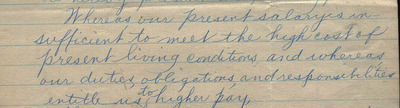 Whereas our present salary is in-
sufficient to meet the high cost of
present living conditions and whereas
our duties, obligations, and responsibilities
entitle us to higher pay,